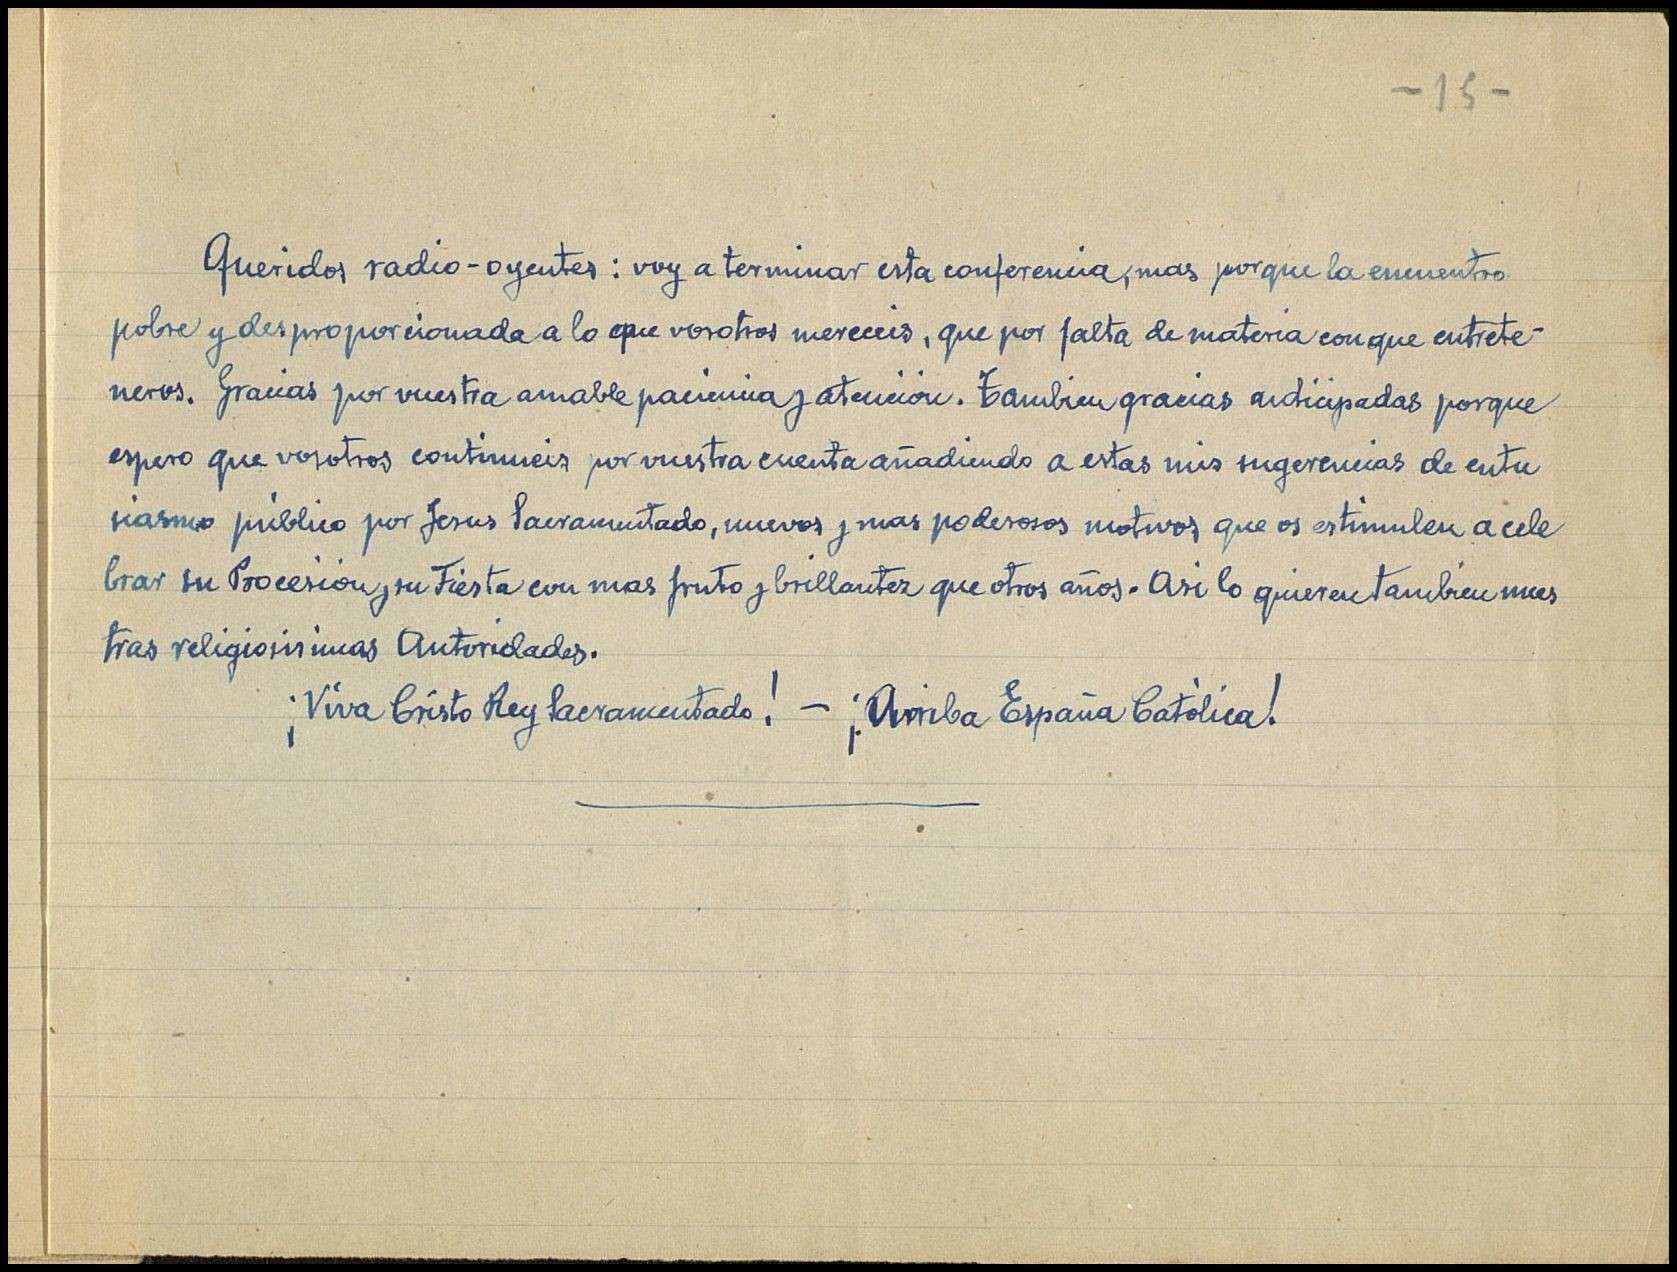 -15-
Queridos radio-oyentes: voy a terminar esta conferencia, mas porque la encuentro
pobre y desproporcionada a lo que vosotros mereceis, que por falta de materia con que entrete-
neros. Gracias por vuestra amable paciencia y atención. Tambien gracias anticipadas porque
espero que vosotros continueis por vuestra cuenta añadiendo a estas mis sugerencias de entu
siasmo público por Jesus Sacramentado, nuevos y mas poderosos motivos que os estimulen a cele
brar su Procesión y su Fiesta con mas fruto y brillantez que otros años. Asi lo quieren tambien nues
tras religiosisimas Autoridades.
¡Viva Cristo Rey Sacramentado! - ¡Arriba España Católica!